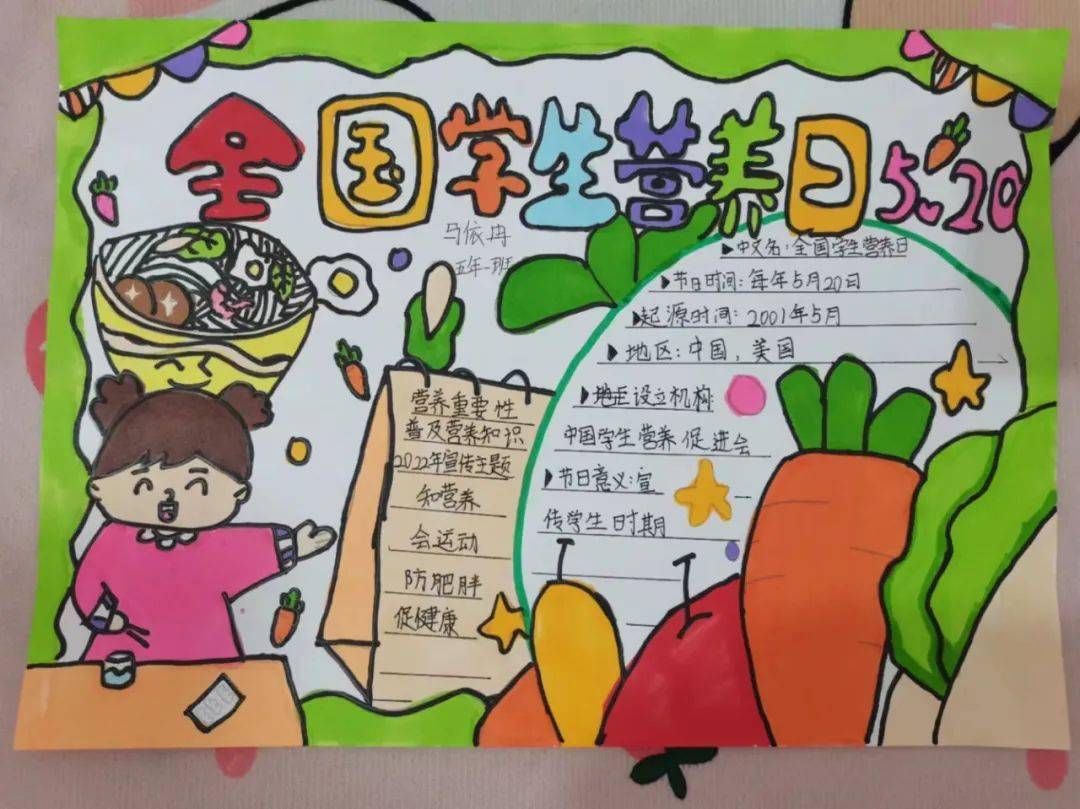 全国学生营养日 5.20
马依冉
五年一班
营养重要性
普及营养知识
2022年宣传主题
知营养
会运动
防肥胖
促健康
▶中文名:全国学生营养日
▶节日时间:每年5月20日
▶起源时间:2001年5月
▶地区:中国,美国
▶地区设立机构:
中国学生营养促进会
▶节日意义:宣
传学生时期